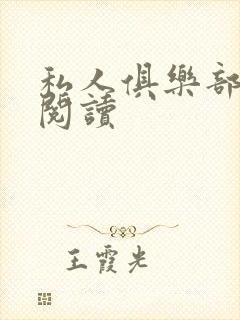 私人俱樂部
閱讀
王霞光